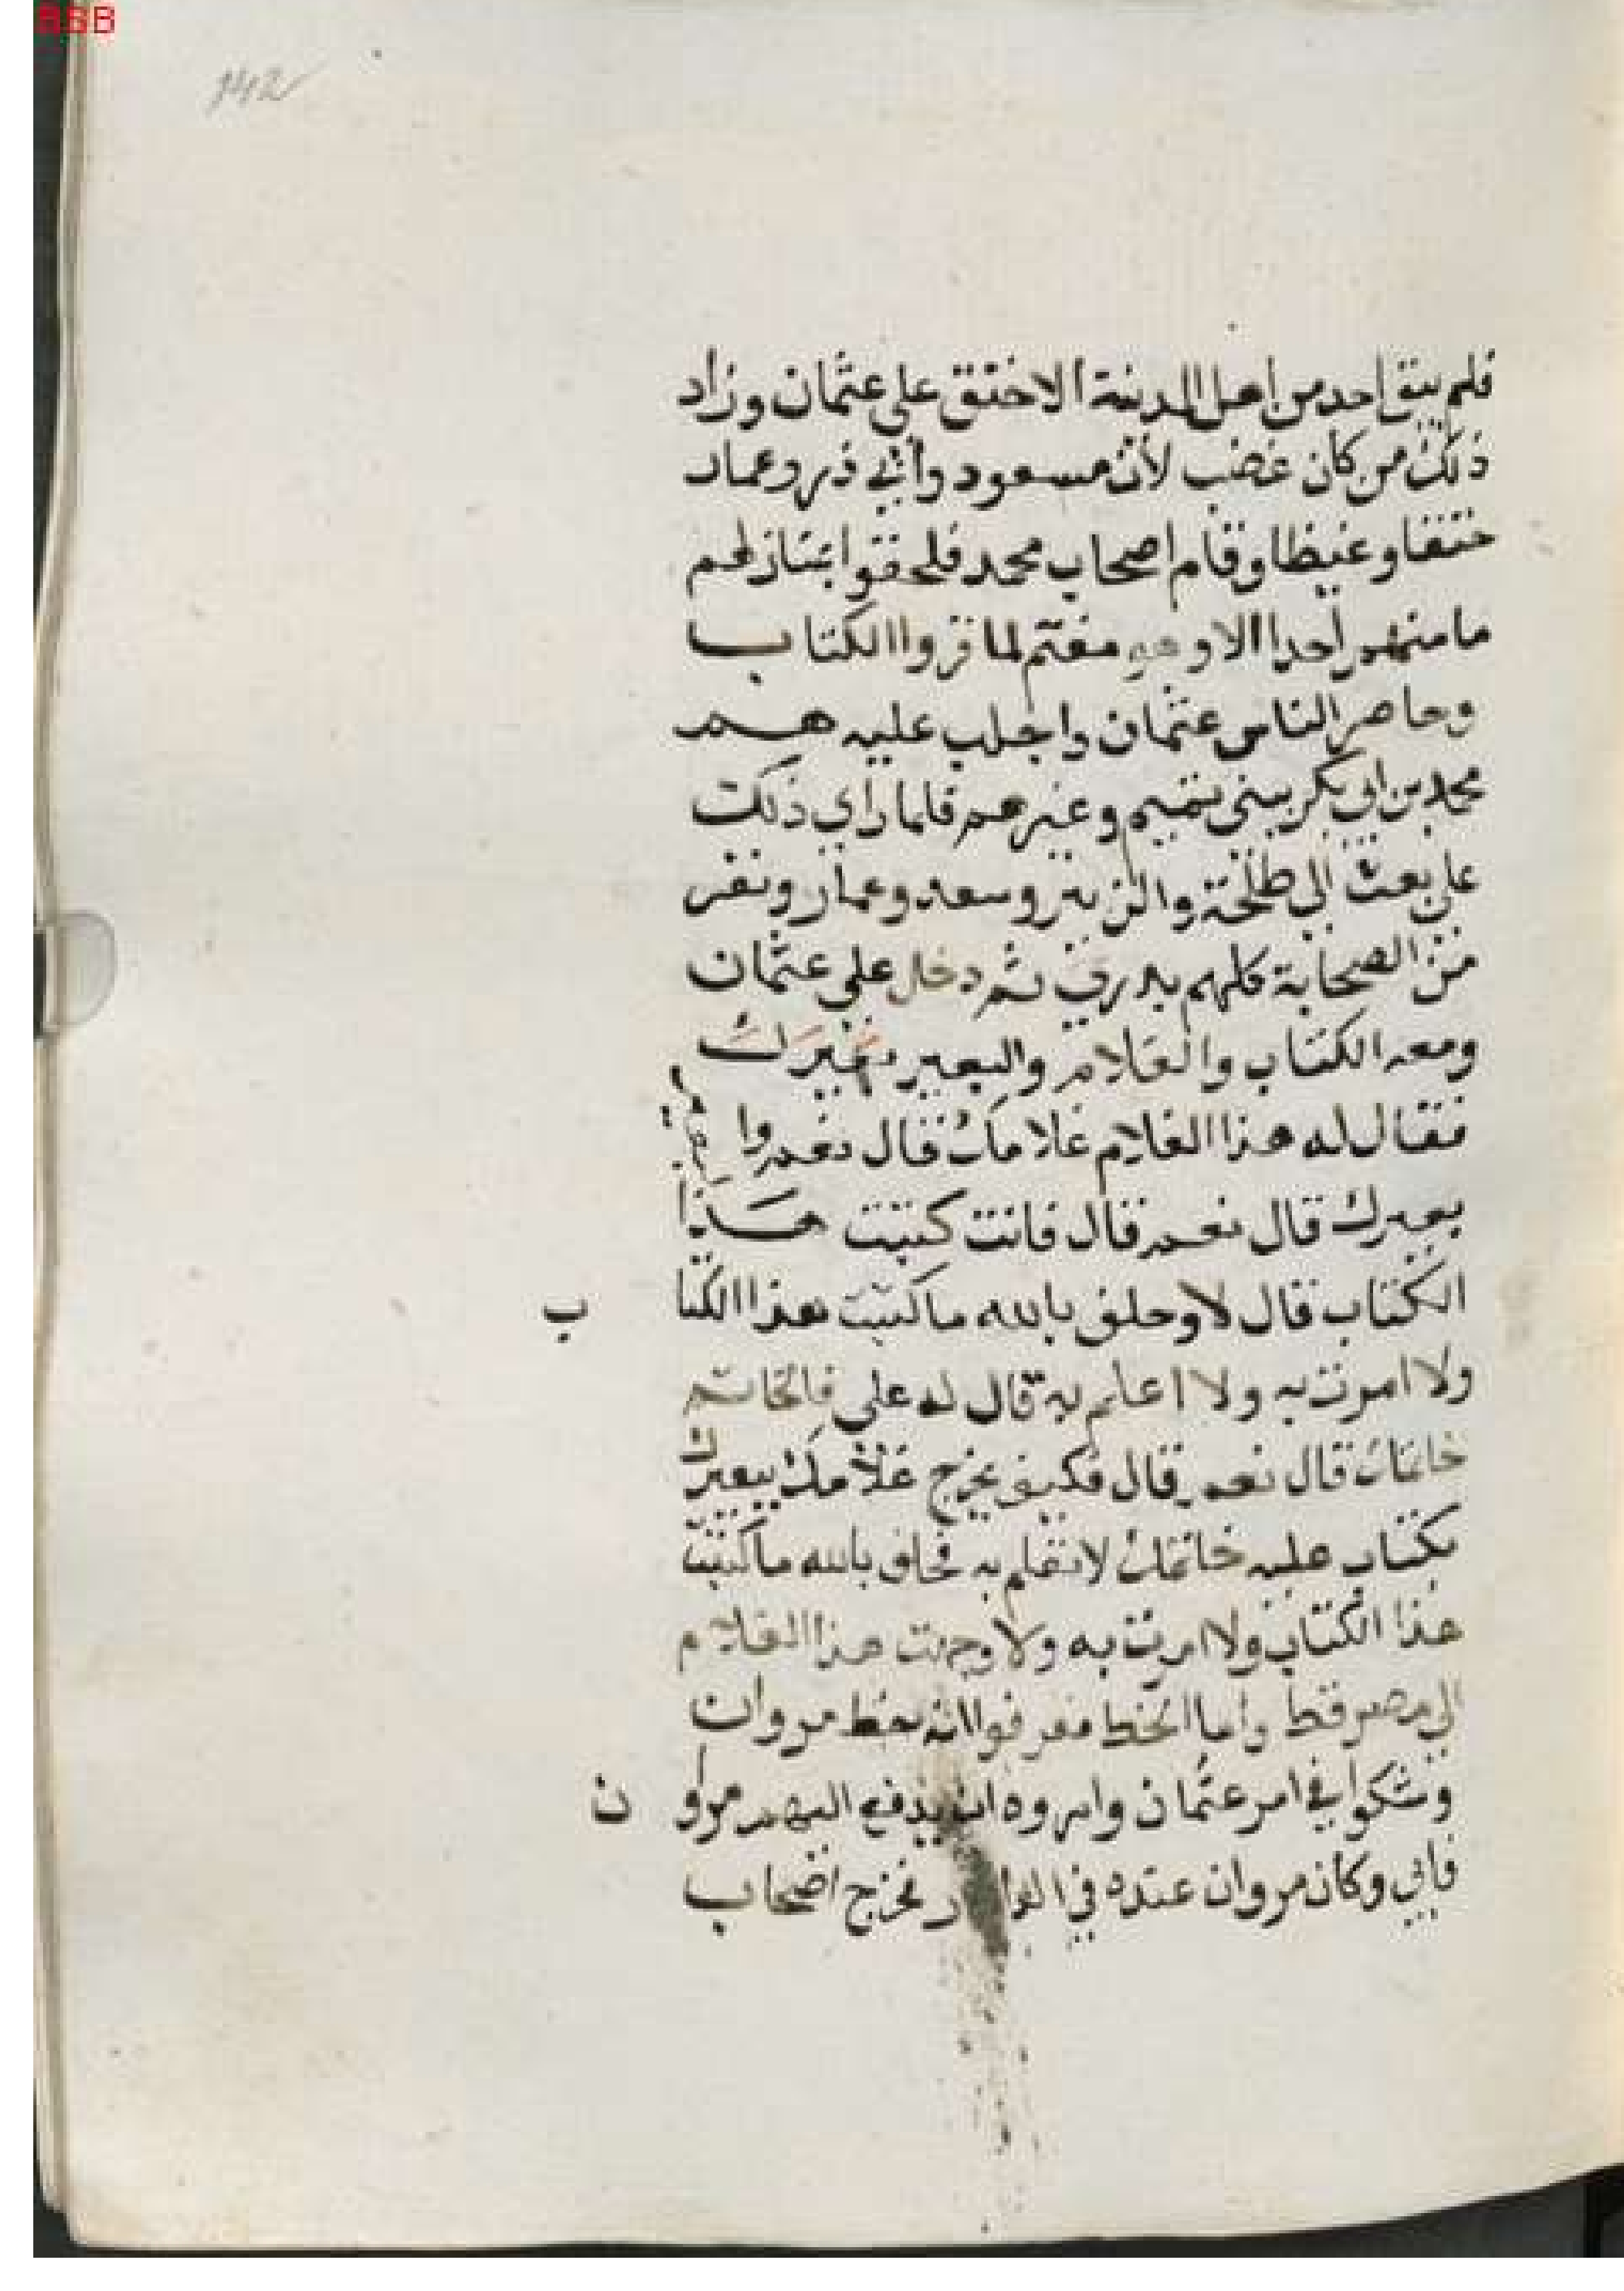 BSB
142
فلم يبق احد من اهل المدينة الا حنق على عثمان وزاد
ذلك من كان غضب لابن مسعود وأبي ذر وعمار
حنقا وغيظا وقام اصحاب محمد فلحقوا بمنازلهم
ما منهم احدا الا وهو مغتم لما قروا الكتاب
وحاصر الناس عثمان واجلب عليه
محمد بن ابي بكر ببني تميم وغيرهم فلما راي ذلك
علي بعث الي طلحة والزبير وسعد وعمار ونفر
من الصحابة كلهم بدري ثم دخل علي عثمان
ومعه الكتاب والغلام والبعير
فقال له هذا الغلام غلامك قال نعم
بعيرك قال نعم قال فانت كتبت هذا
الكتاب قال لا وحلف بالله ما كتبت هذا الكتاب
ولا امرت به ولا اعلم به قال له علي فالخاتم
خاتمك قال نعم قال فكيف يخرج غلامك ببعيرك
بكتاب عليه خاتمك لا تعلم به فحلف بالله ما كتبت
هذا الكتاب ولا امرت به ولا وجهت هذا الغلام
الي مصر قط واما الخط فعرفوا انه خط مروان
وشكوا في امر عثمان وامروه ان يدفع اليهم مروان
فابي وكان مروان عنده في الدار فخرج اصحاب